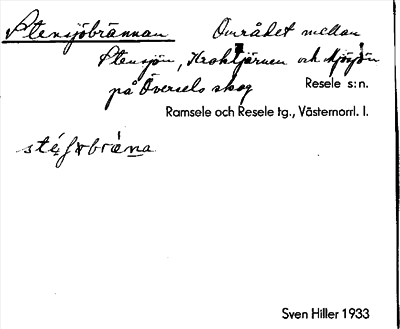 Stensjöbrännan Området mellan
Stensjön, Kroktjärnen och
på Översels skog Resele s:n.
Ramsele och Resele tg., Västernorrl. l.
Sven Hiller 1933